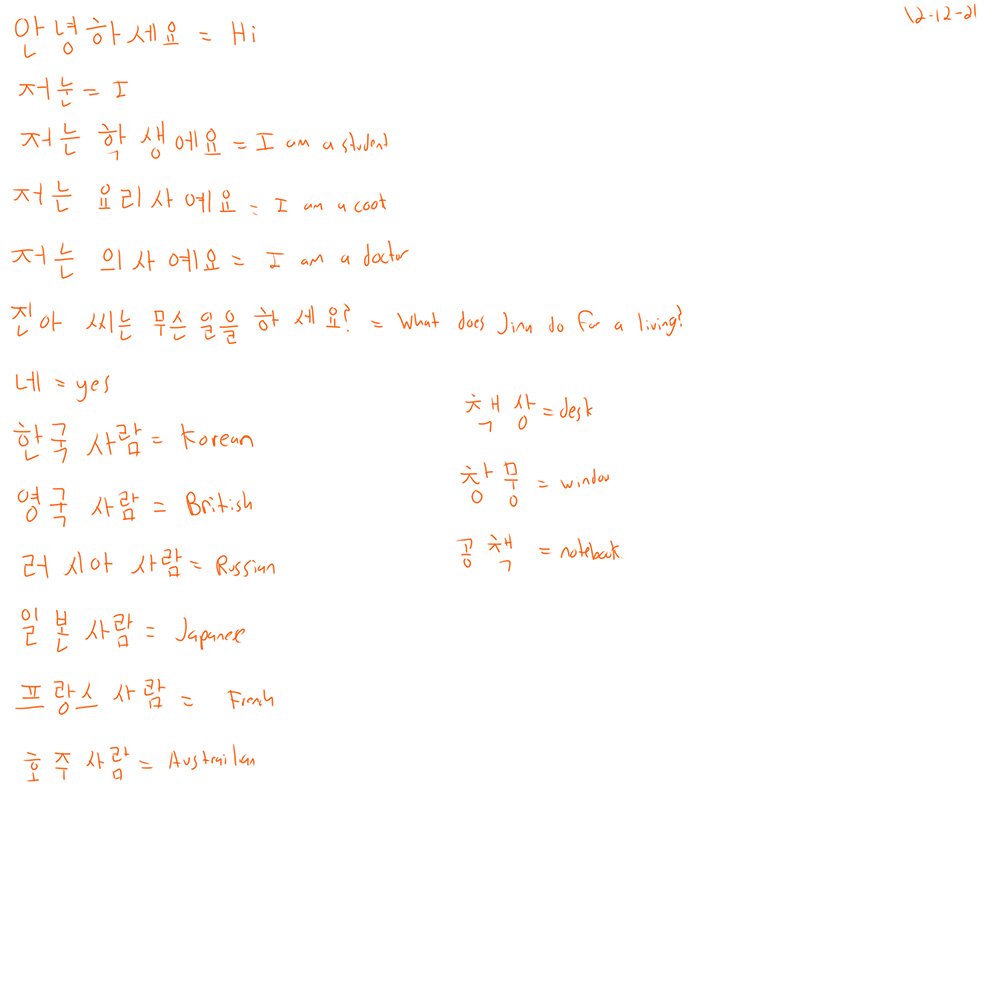 12-12-21
안녕하세요 = Hi
저눈 = I
저는 학생에요 = I am a student
저는 요리사예요 = I am a coot
저는 의사예요 = I am a doctor
진아 씨는 무슨 일을 하세요? = What does Jina do for a living?
네 = yes
한국 사람 = Korean
영국 사람 = British
러시아 사람 = Russian
일본 사람 = Japanese
프랑스 사람 = French
호주 사람 = Australian
책상 = desk
창뭉 = window
공책 = notebook